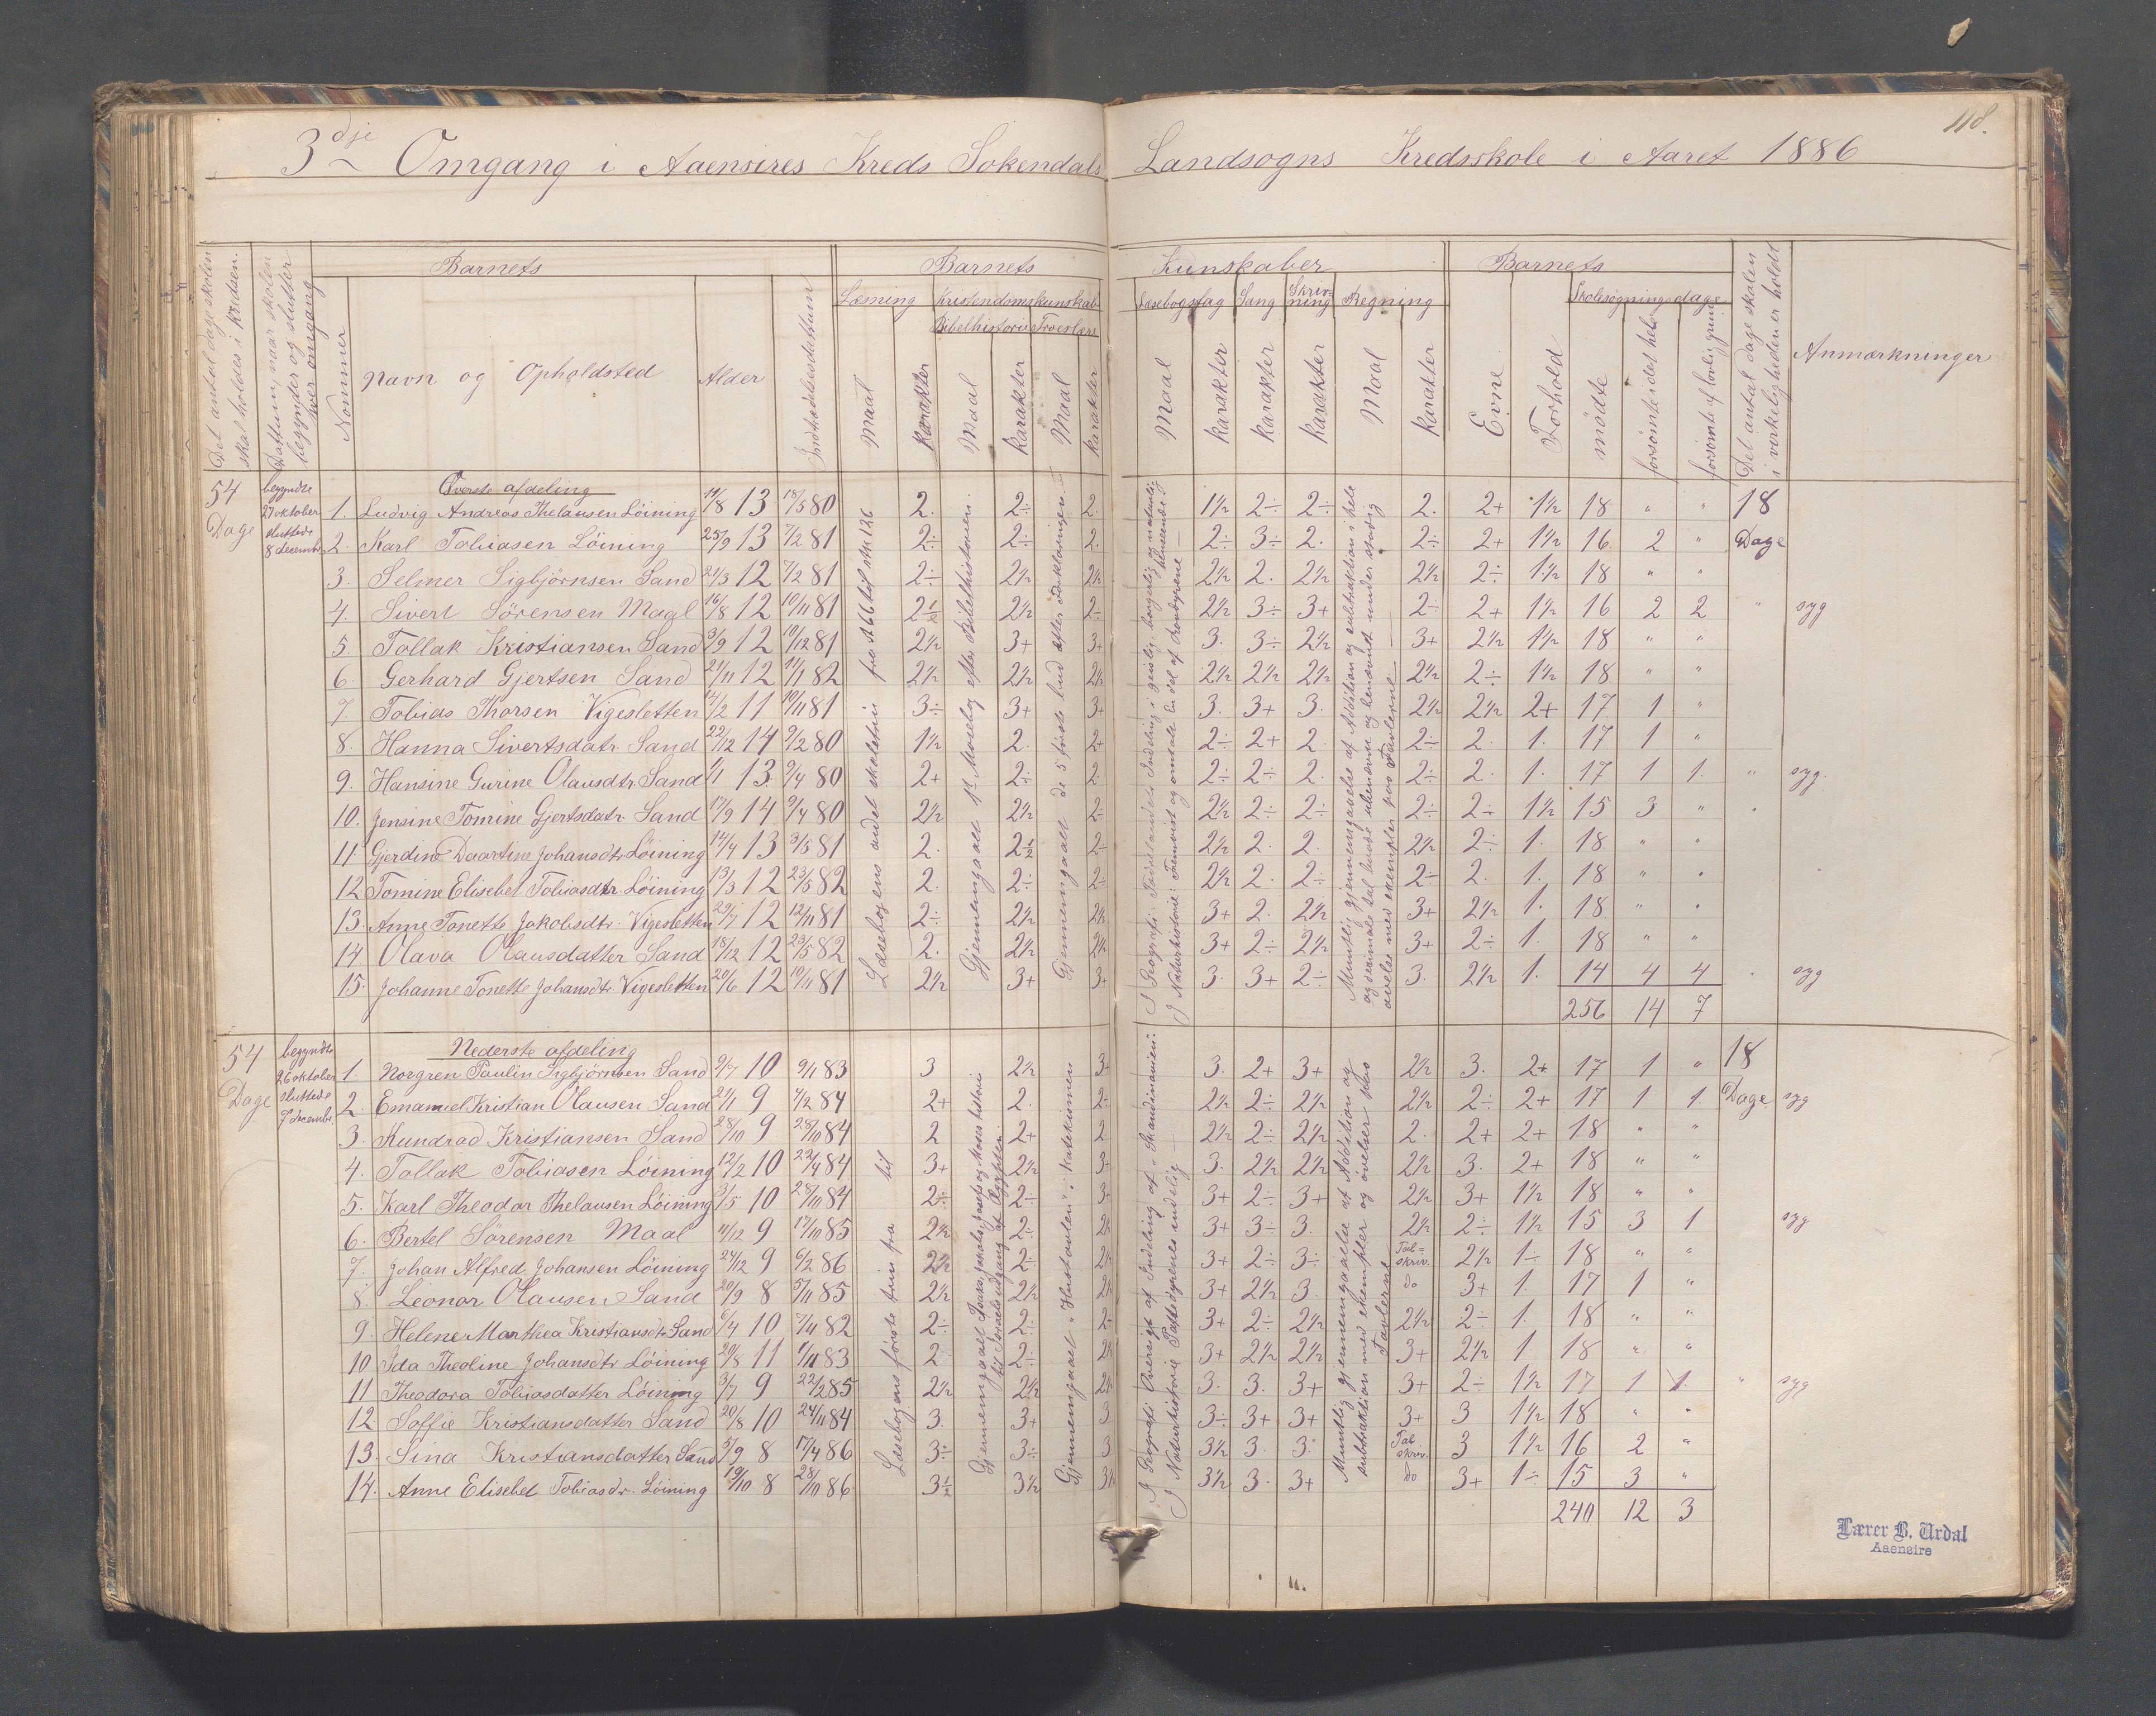 118.
3dje Omgang i Aaensires Kreds Sokendals Landsogns Kredsskole i Aaret 1886
Det antal dage skolen skal holdes i kredsen.
Dattum, naar skolen begynder og slutter hver omgang
Barnets
Nommer
Navn og Opholdsted
Alder
Indtrædelsesdattum
Barnets Kunskaber
Læsning
Maal
Karakter
Kristendomskunskab
Bibelhistorie
Troeslære
Maal
Karakter
Maal
Karakter
Læsebogsfag
Sang
Skrivning
Regning
Maal
Karakter
Karakter
Karakter
Maal
Karakter
Barnets
Evne
Forhold
Skolesøgningsdage
mødte
forsømte i det hele
forsømte af lovlig grund
Det antal dage skolen i virkeligheden er holdt
Anmærkninger
54 Dage
begyndte 27 oktober sluttede 8 decembr.
Øverste afdeling
1. Ludvig Andreas Thelausen Löining 11/8 13 18/5 80 2. 2÷ 2. 1½ 2÷ 2÷ 2. 2+ 1½ 18 " " 18
2. Karl Tobiasen Löining 25/9 13 7/2 81 2÷ 2÷ 2. 2÷ 3÷ 2. 2÷ 2+ 1½ 16 2 " Dage
3. Selmer Sigbjörnsen Sand 21/3 12 7/2 81 2÷ 2½ 2½ 2½ 2. 2½ 2½ 2÷ 1½ 18 " "
4. Sivert Sörensen Maal 16/8 12 10/11 81 2½ 2½ 2÷ 2½ 3÷ 3+ 2÷ 2+ 1½ 16 2 2 " syg
5. Tollak Kristiansen Sand 3/9 12 10/12 81 2½ 3+ 3+ 3. 3÷ 2½ 3+ 2½ 1½ 18 " "
6. Gerhard Gjertsen Sand 21/11 12 11/1 82 2½ 2½ 2½ 2½ 2½ 2½ 2½ 2÷ 1½ 18 " "
7. Tobias Thorsen Vigesletten 14/2 11 10/11 81 3÷ 3+ 3+ 3. 3+ 3. 2½ 2½ 2+ 17 1 "
8. Hanna Sivertsdatr. Sand 22/12 14 9/2 80 1½ 2. 2+ 2÷ 2+ 2. 2÷ 2. 1. 17 1 "
9. Hansine Gurine Olausdtr. Sand 1/1 13. 9/4 80 2+ 2÷ 2. 2÷ 2÷ 2. 2÷ 2. 1. 17 1 1. " syg.
10. Jensine Tomine Gjertsdatr. Sand 17/9 14 9/4 80 2½ 2½ 2÷ 2½ 2÷ 2÷ 2÷ 2÷ 1½ 15 3 "
11 Gjerdine Daartine Johansdtr. Löining 14/4 13 3/5 81 2. 2½ 2÷ 2½ 2. 2. 2½ 2÷ 1. 18 " "
12 Tomine Elisebet Tobiasdtr. Löining 13/3 12 23/5 82 2. 2÷ 2÷ 2½ 2. 2÷ 2÷ 2. 1. 18 " "
13. Anne Tonette Jakobsdtr. Vigesletten 29/7 12 12/11 81 2÷ 2½ 2½ 3+ 2. 2½ 3+ 2½ 1. 18 " "
14. Olava Olausdatter Sand 18/12 12 23/5 82 2. 2½ 2½ 3+ 2÷ 2½ 3+ 2÷ 1. 18 " "
15. Johanne Tonette Johansdtr. Vigesletten 20/6 12 10/11 81 2½ 3+ 3+ 3. 3+ 2÷ 3. 2½ 1. 14 4 4 syg
256 14 7
Læsebogens andet skoletrin fra s. 66 til s. 126
Gjennemgaaet 1st Mosebog efter Bibelhistorien.
Gjennemgaaet de 5 første bud efter Forklaringen.
54 Dage
begyndte 26 oktober sluttede 7 decembr.
Nederste afdeling
1. Norgren Paulin Sigbjörnsen Sand 9/7 10 9/1 83 3 2½ 3+ 3. 2+ 3+ 2½ 3. 2+ 17 1 " 18
2 Emanuel Kristian Olausen Sand 21/1 9 4/2 84 2+ 2. 2÷ 2½ 2÷ 2½ 2½ 2÷ 2+ 17 1 1. Dage syg
3. Aundrad Kristiansen Sand 28/10 9 28/10 84 2 2+ 2 2½ 2÷ 2½ 2. 2+ 2+ 18 " "
4. Tollak Tobiasen Löining 12/2 10 22/4 84 3+ 2½ 3+ 3. 2½ 2½ 2½ 3. 2+ 18 " "
5. Karl Theodor Thelausen Löining 3/5 10 28/10 84 2÷ 2÷ 3+ 3+ 2÷ 3+ 2½ 3+ 1½ 18 " "
6. Bertel Sörensen Maal 11/12 9 17/10 85 2½ 2÷ 2½ 3+ 3÷ 3. 2½ 2÷ 1½ 15 3 1 syg
7. Johan Alfred Johansen Löining 24/12 9 6/2 86 2½ 2÷ 2½ 3+ 2÷ 3÷ Talskriv. 2½ 1÷ 18 " "
8. Leonar Olausen Sand 20/9 8 5/11 85 2½ 2½ 2½ 3+ 2½ 3. do 3+ 1. 17 1 "
9. Helene Marthea Kristiansdtr. Sand 6/4 10 7/11 82 2÷ 2÷ 2÷ 3+ 2÷ 2½ 2½ 2÷ 1. 18 " "
10 Ida Theoline Johansdtr. Löining 20/8 11 1/11 83 2 2÷ 2½ 3+ 2½ 2½ 3+ 2½ 1 18 " "
11 Theodora Tobiasdatter Löining 3/7 9 22/2 85 2½ 2½ 2½ 3. 3. 3+ 3+ 2÷ 1½ 17 1 1. " syg
12 Soffie Kristiansdatter Sand 20/8 10 24/11 84 3 3+ 3 3÷ 3+ 3+ 3+ 3 1½ 18 " "
13. Sina Kristiansdatter Sand 5/9 8 17/4 86 3÷ 3÷ 3 3½ 3. 3. Talskriv. 3 1½ 16 2 "
14. Anne Elisebet Tobiasdr. Löining 19/10 8 28/10 86 3½ 3½ 3½ 3½ 3. 3+ do 3+ 1÷ 15 3 "
240 12 3
Læsebogens første trin fra til
Gjennemgaaet "Hustavlen" i Katekismen
Lærer B. Urdal
Aaensire